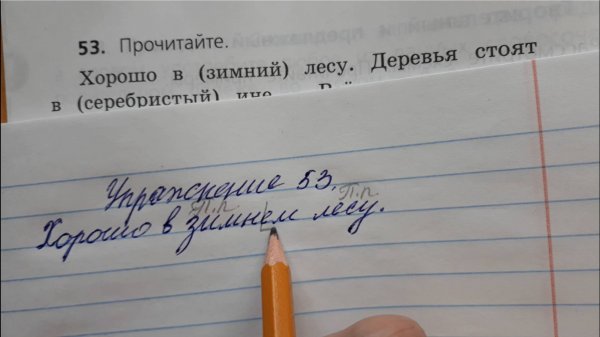 53. Прочитайте.
Хорошо в (зимний) лесу. Деревья стоят
в (серебристый)
Упражнение 53.
П.п. П.п.
Хорошо в зимнем лесу.